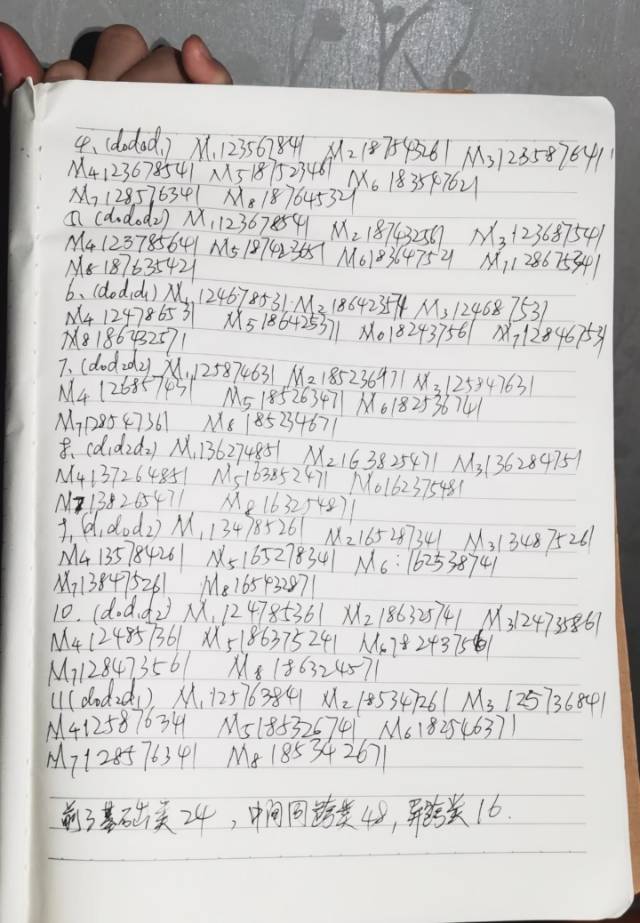 4、(d0d0d1) M1123567841 M2187543261 M3123587641
M4123678541 M5187523461 M6183547621
M7128576341 M8187645321
5、(d0d0d2) M1123678541 M2187432561 M3123687541
M4123785641 M5187423651 M6183647521 M7128675341
M8187635421
6、(d0d1d1) M1124678531 M2186423571 M3124687531
M4124786531 M5186425371 M6182437561 M7128467531
M8186432571
7、(d0d2d2) M1125874631 M2185236471 M3125847631
M4126857431 M5185263471 M6182536741
M7128547361 M8185234671
8、(d1d2d2) M1136274851 M2163825471 M3136284751
M4137264851 M5163852471 M6162375481
M7138265471 M8163254871
9、(d1d0d2) M1134785261 M2165287341 M3134875261
M4135784261 M5165278341 M6:162538741
M7138475261 M8165432871
10、(d0d1d2) M1124785361 M2186325741 M3124735861
M4124857361 M5186375241 M6182437561
M7128473561 M8186324571
11(d0d2d1) M1125763841 M2185347261 M3125736841
M4125876341 M5185326741 M6182546371
M7128576341 M8185342671
前3基石出类24,中间同跨类48,异跨类16.